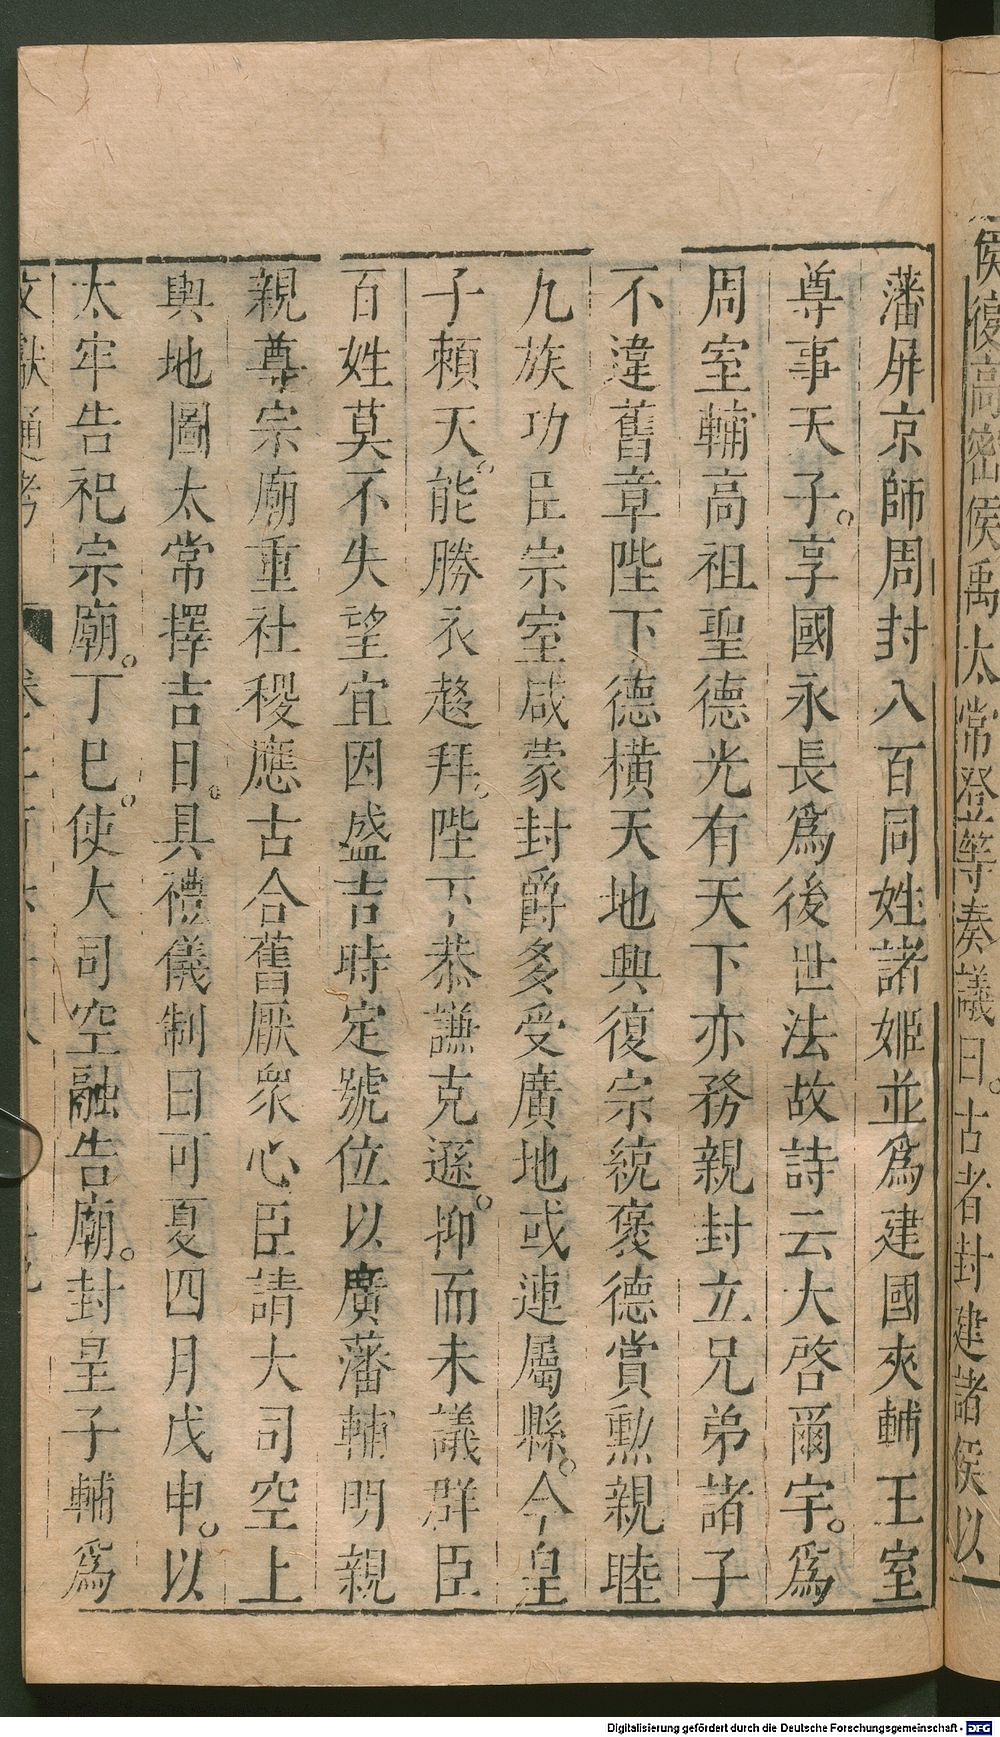 侯復高密侯禹太常登等奏議曰。古者封建諸侯以
藩屏京師周封八百同姓諸姬並爲建國夾輔王室
尊事天子。享國永長爲後世法故詩云大啓爾宇。爲
周室輔高祖聖德光有天下亦務親封立兄弟諸子
不違舊章陛下德橫天地興復宗統褒德賞勲親睦
九族功臣宗室咸蒙封爵多受廣地或連屬縣。今皇
子頼天。能勝衣趍拜。陛下恭謙克遜。抑而未議群臣
百姓莫不失望宜因盛吉時定號位以廣藩輔明親
親尊宗廟重社稷應古合舊厭衆心臣請大司空上
輿地圖太常擇吉日。具禮儀制曰可夏四月戊申。以
太牢告祀宗廟。丁巳。使大司空融告廟。封皇子輔爲
文獻通考
Digitalisierung gefördert durch die Deutsche Forschungsgemeinschaft - DFG